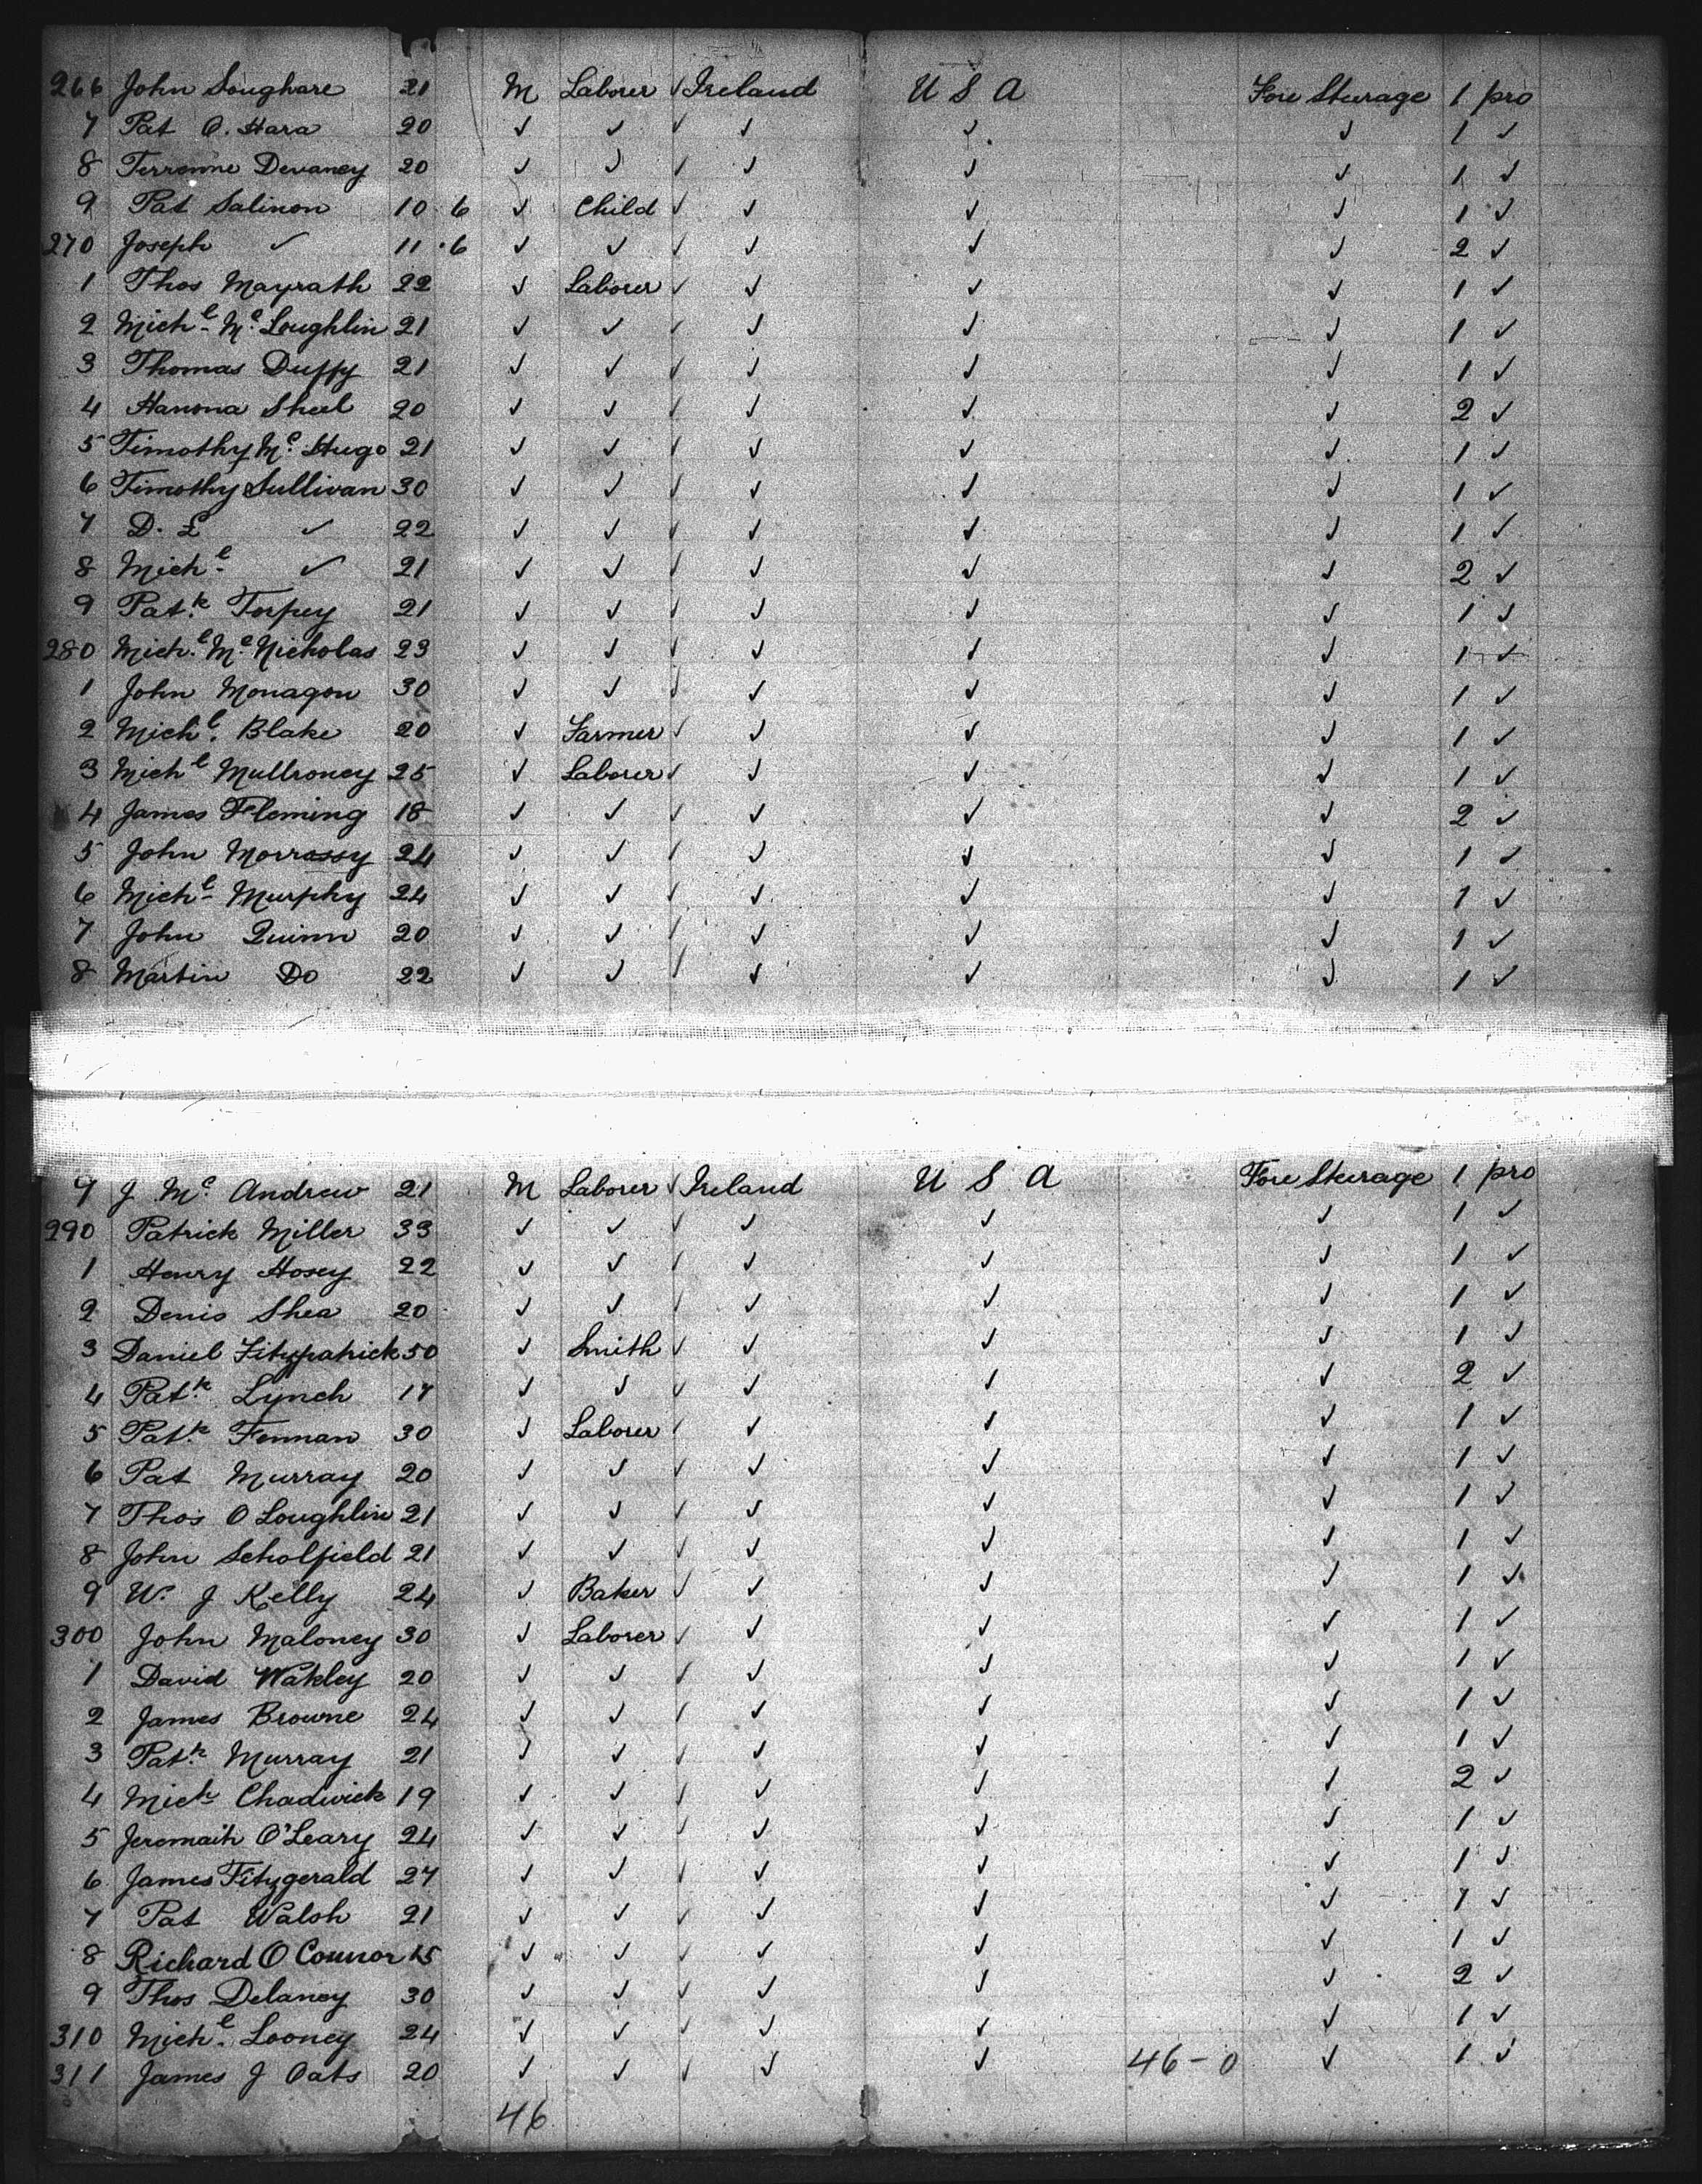 266 John Soughare 21 M Laborer ✓ Ireland U S A Fore Steerage 1 pro
7 Pat O. Hara 20 ✓ ✓ ✓ ✓ ✓ ✓ 1 ✓
8 Terrenne Devaney 20 ✓ ✓ ✓ ✓ ✓ ✓ 1 ✓
9 Pat Salinon 10 6 ✓ Child ✓ ✓ ✓ ✓ 1 ✓
270 Joseph ✓ 11 . 6 ✓ ✓ ✓ ✓ ✓ ✓ 2 ✓
1 Thos Mayrath 22 ✓ Laborer ✓ ✓ ✓ ✓ 1 ✓
2 Michl Mc Loughlin 21 ✓ ✓ ✓ ✓ ✓ ✓ 1 ✓
3 Thomas Duffy 21 ✓ ✓ ✓ ✓ ✓ ✓ 1 ✓
4 Hanona Sheel 20 ✓ ✓ ✓ ✓ ✓ ✓ 2 ✓
5 Timothy Mc Hugo 21 ✓ ✓ ✓ ✓ ✓ ✓ 1 ✓
6 Timothy Sullivan 30 ✓ ✓ ✓ ✓ ✓ ✓ 1 ✓
7 D. L ✓ 22 ✓ ✓ ✓ ✓ ✓ ✓ 1 ✓
8 Michl ✓ 21 ✓ ✓ ✓ ✓ ✓ ✓ 2 ✓
9 Patk Torpey 21 ✓ ✓ ✓ ✓ ✓ ✓ 1 ✓
280 Michl Mc Nicholas 23 ✓ ✓ ✓ ✓ ✓ ✓ 1 ✓
1 John Monagon 30 ✓ ✓ ✓ ✓ ✓ ✓ 1 ✓
2 Michl. Blake 20 ✓ Farmer ✓ ✓ ✓ ✓ 1 ✓
3 Michl Mullroney 25 ✓ Laborer ✓ ✓ ✓ ✓ 1 ✓
4 James Fleming 18 ✓ ✓ ✓ ✓ ✓ ✓ 2 ✓
5 John Morrassy 24 ✓ ✓ ✓ ✓ ✓ ✓ 1 ✓
6 Michl Murphy 24 ✓ ✓ ✓ ✓ ✓ ✓ 1 ✓
7 John Quinn 20 ✓ ✓ ✓ ✓ ✓ ✓ 1 ✓
8 Martin Do 22 ✓ ✓ ✓ ✓ ✓ ✓ 1 ✓
9 J Mc Andrew 21 M Laborer ✓ Ireland U S A Fore Steerage 1 pro
290 Patrick Miller 33 ✓ ✓ ✓ ✓ ✓ ✓ 1 ✓
1 Henry Hosey 22 ✓ ✓ ✓ ✓ ✓ ✓ 1 ✓
2 Denis Shea 20 ✓ ✓ ✓ ✓ ✓ ✓ 1 ✓
3 Daniel Fitzpatrick 50 ✓ Smith ✓ ✓ ✓ ✓ 1 ✓
4 Patk Lynch 17 ✓ ✓ ✓ ✓ ✓ ✓ 2 ✓
5 Patk Fennan 30 ✓ Laborer ✓ ✓ ✓ ✓ 1 ✓
6 Pat Murray 20 ✓ ✓ ✓ ✓ ✓ ✓ 1 ✓
7 Thos O Loughlin 21 ✓ ✓ ✓ ✓ ✓ ✓ 1 ✓
8 John Scholfield 21 ✓ ✓ ✓ ✓ ✓ ✓ 1 ✓
9 W. J Kelly 24 ✓ Baker ✓ ✓ ✓ ✓ 1 ✓
300 John Maloney 30 ✓ Laborer ✓ ✓ ✓ ✓ 1 ✓
1 David Wakley 20 ✓ ✓ ✓ ✓ ✓ ✓ 1 ✓
2 James Browne 24 ✓ ✓ ✓ ✓ ✓ ✓ 1 ✓
3 Patk Murray 21 ✓ ✓ ✓ ✓ ✓ ✓ 1 ✓
4 Mich Chadwick 19 ✓ ✓ ✓ ✓ ✓ ✓ 2 ✓
5 Jeremaih O'Leary 24 ✓ ✓ ✓ ✓ ✓ ✓ 1 ✓
6 James Fitzgerald 27 ✓ ✓ ✓ ✓ ✓ ✓ 1 ✓
7 Pat Walsh 21 ✓ ✓ ✓ ✓ ✓ ✓ 1 ✓
8 Richard O Connor 15 ✓ ✓ ✓ ✓ ✓ ✓ 1 ✓
9 Thos Delaney 30 ✓ ✓ ✓ ✓ ✓ ✓ 2 ✓
310 Michl Looney 24 ✓ ✓ ✓ ✓ ✓ ✓ 1 ✓
311 James J Oats 20 ✓ ✓ ✓ ✓ ✓ 46-0 ✓ 1 ✓
46